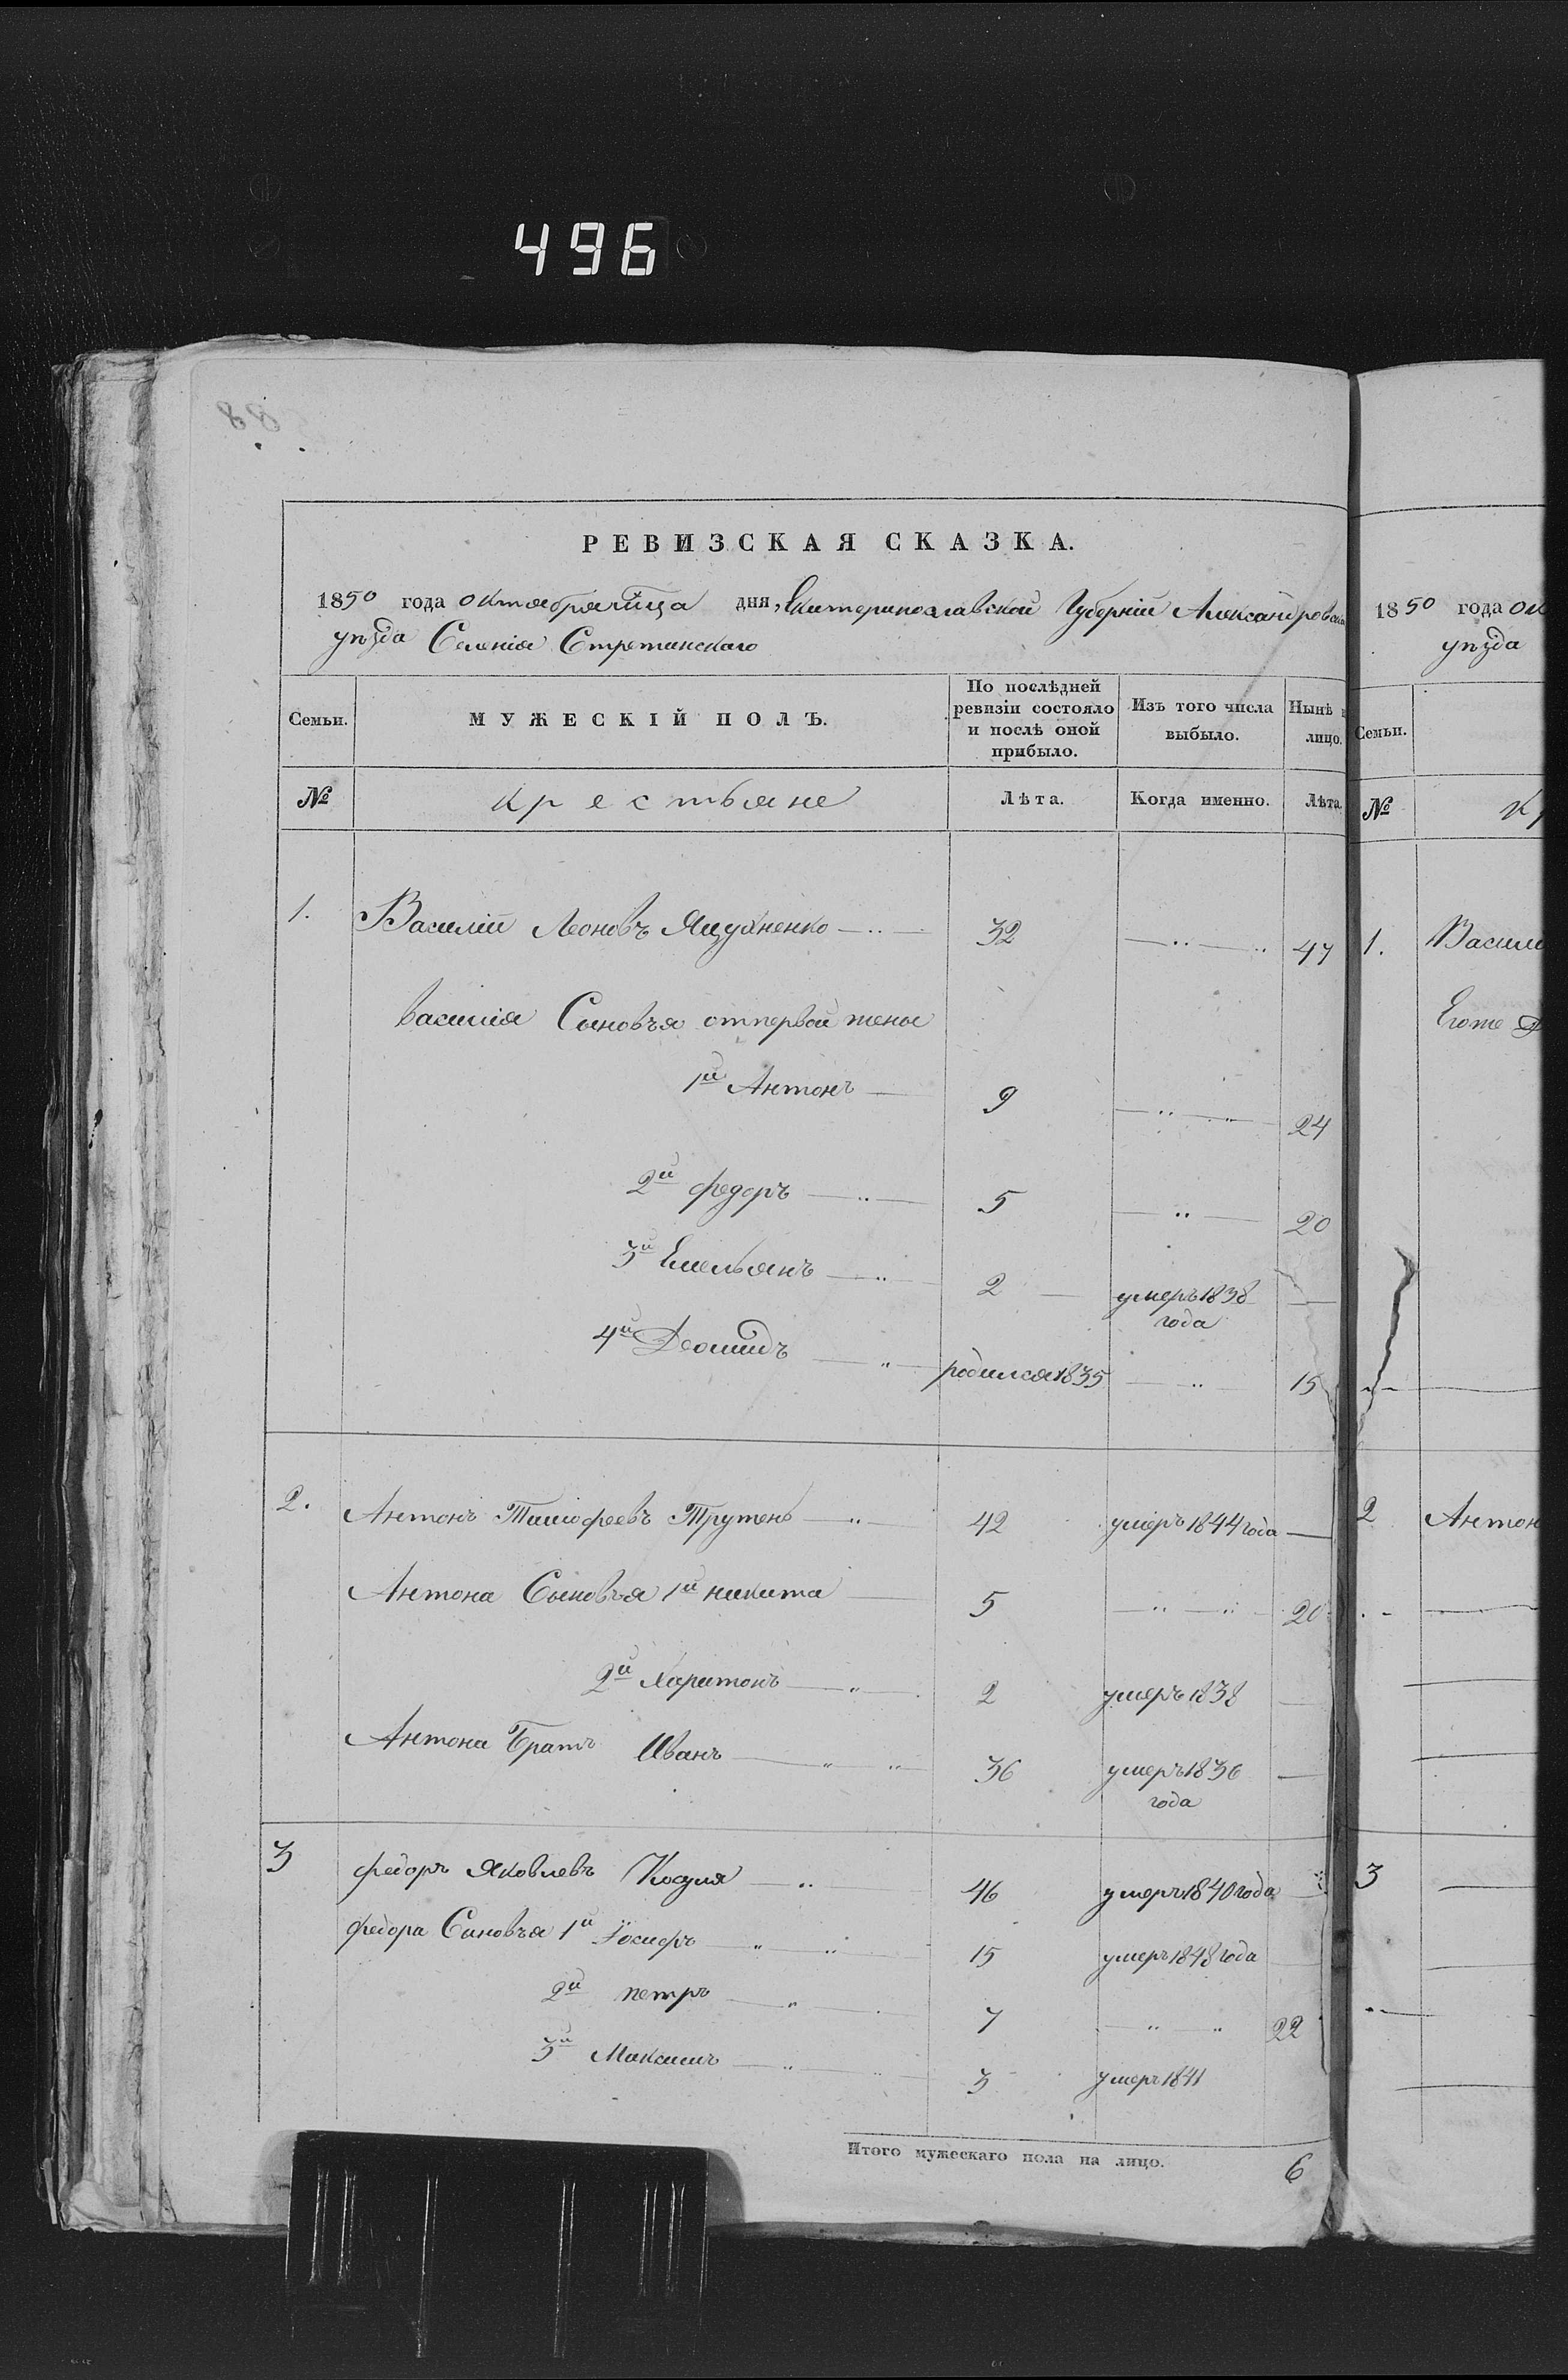 496
РЕВИЗСКАЯ СКАЗКА.
1850 года октября дня, Екатеринославской Губерніи Александровска
уѣзда Селенія Стретинскаго
Семьи. МУЖЕСКІЙ ПОЛЪ. По послѣдней ревизіи состояло и послѣ оной прибыло. Изъ того числа выбыло. Нынѣ лицо.
№ Крестьяне Лѣта. Когда именно. Лѣта
1. Василій Леоновъ Ящухненко 32 47
Василія Сыновья отпервой жены
1й Антонъ 9 24
2й федоръ 5 20
3й Емельянъ 2 умеръ 1838 года
4й Деомидъ родился 1835 15
2. Антонъ Тимофеевъ Трутень 42 умеръ 1844 года
Антона Сыновья 1й никита 5 20
2й Харитонъ 2 умеръ 1838
Антона Братъ Иванъ 36 умеръ 1836 года
3 федоръ Яковлевъ 46 умеръ 1840 года
федора Синовья 1й Іосифъ 15 умеръ 1848 года
2й петръ 7 22
3й Максимъ 3 умеръ 1841
Итого мужескаго пола на лицо. 6
1850 года ок
уѣзда
Семьи.
№ Кр
1. Васили
Егоже
2 Антон
3